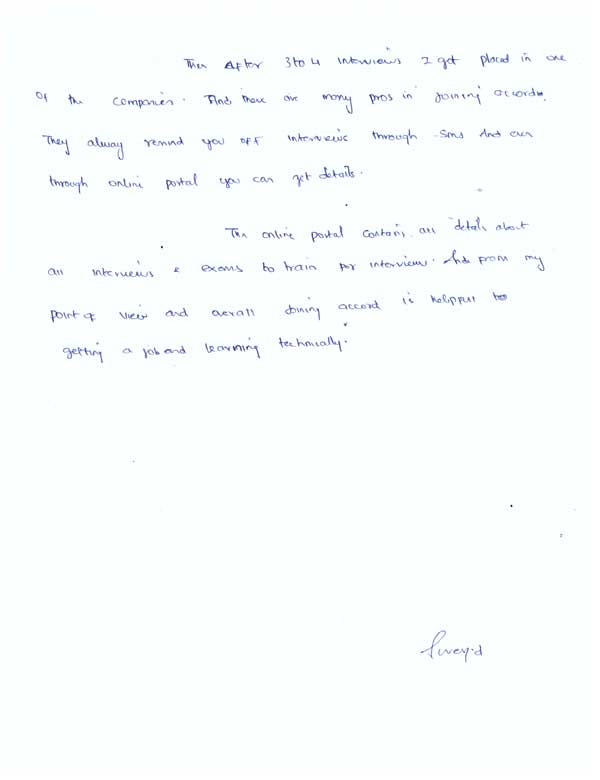 Then After 3 to 4 Interviews I get placed in one
Of the companies. And there are many pros in joining accord.
They alway remind you off interviews through sms And even
through online portal you can get details.
The online portal contains all details about
all interviews & exams to train for interview. And from my
point of view and overall Joining accord is helpful to
getting a job and learning technically.